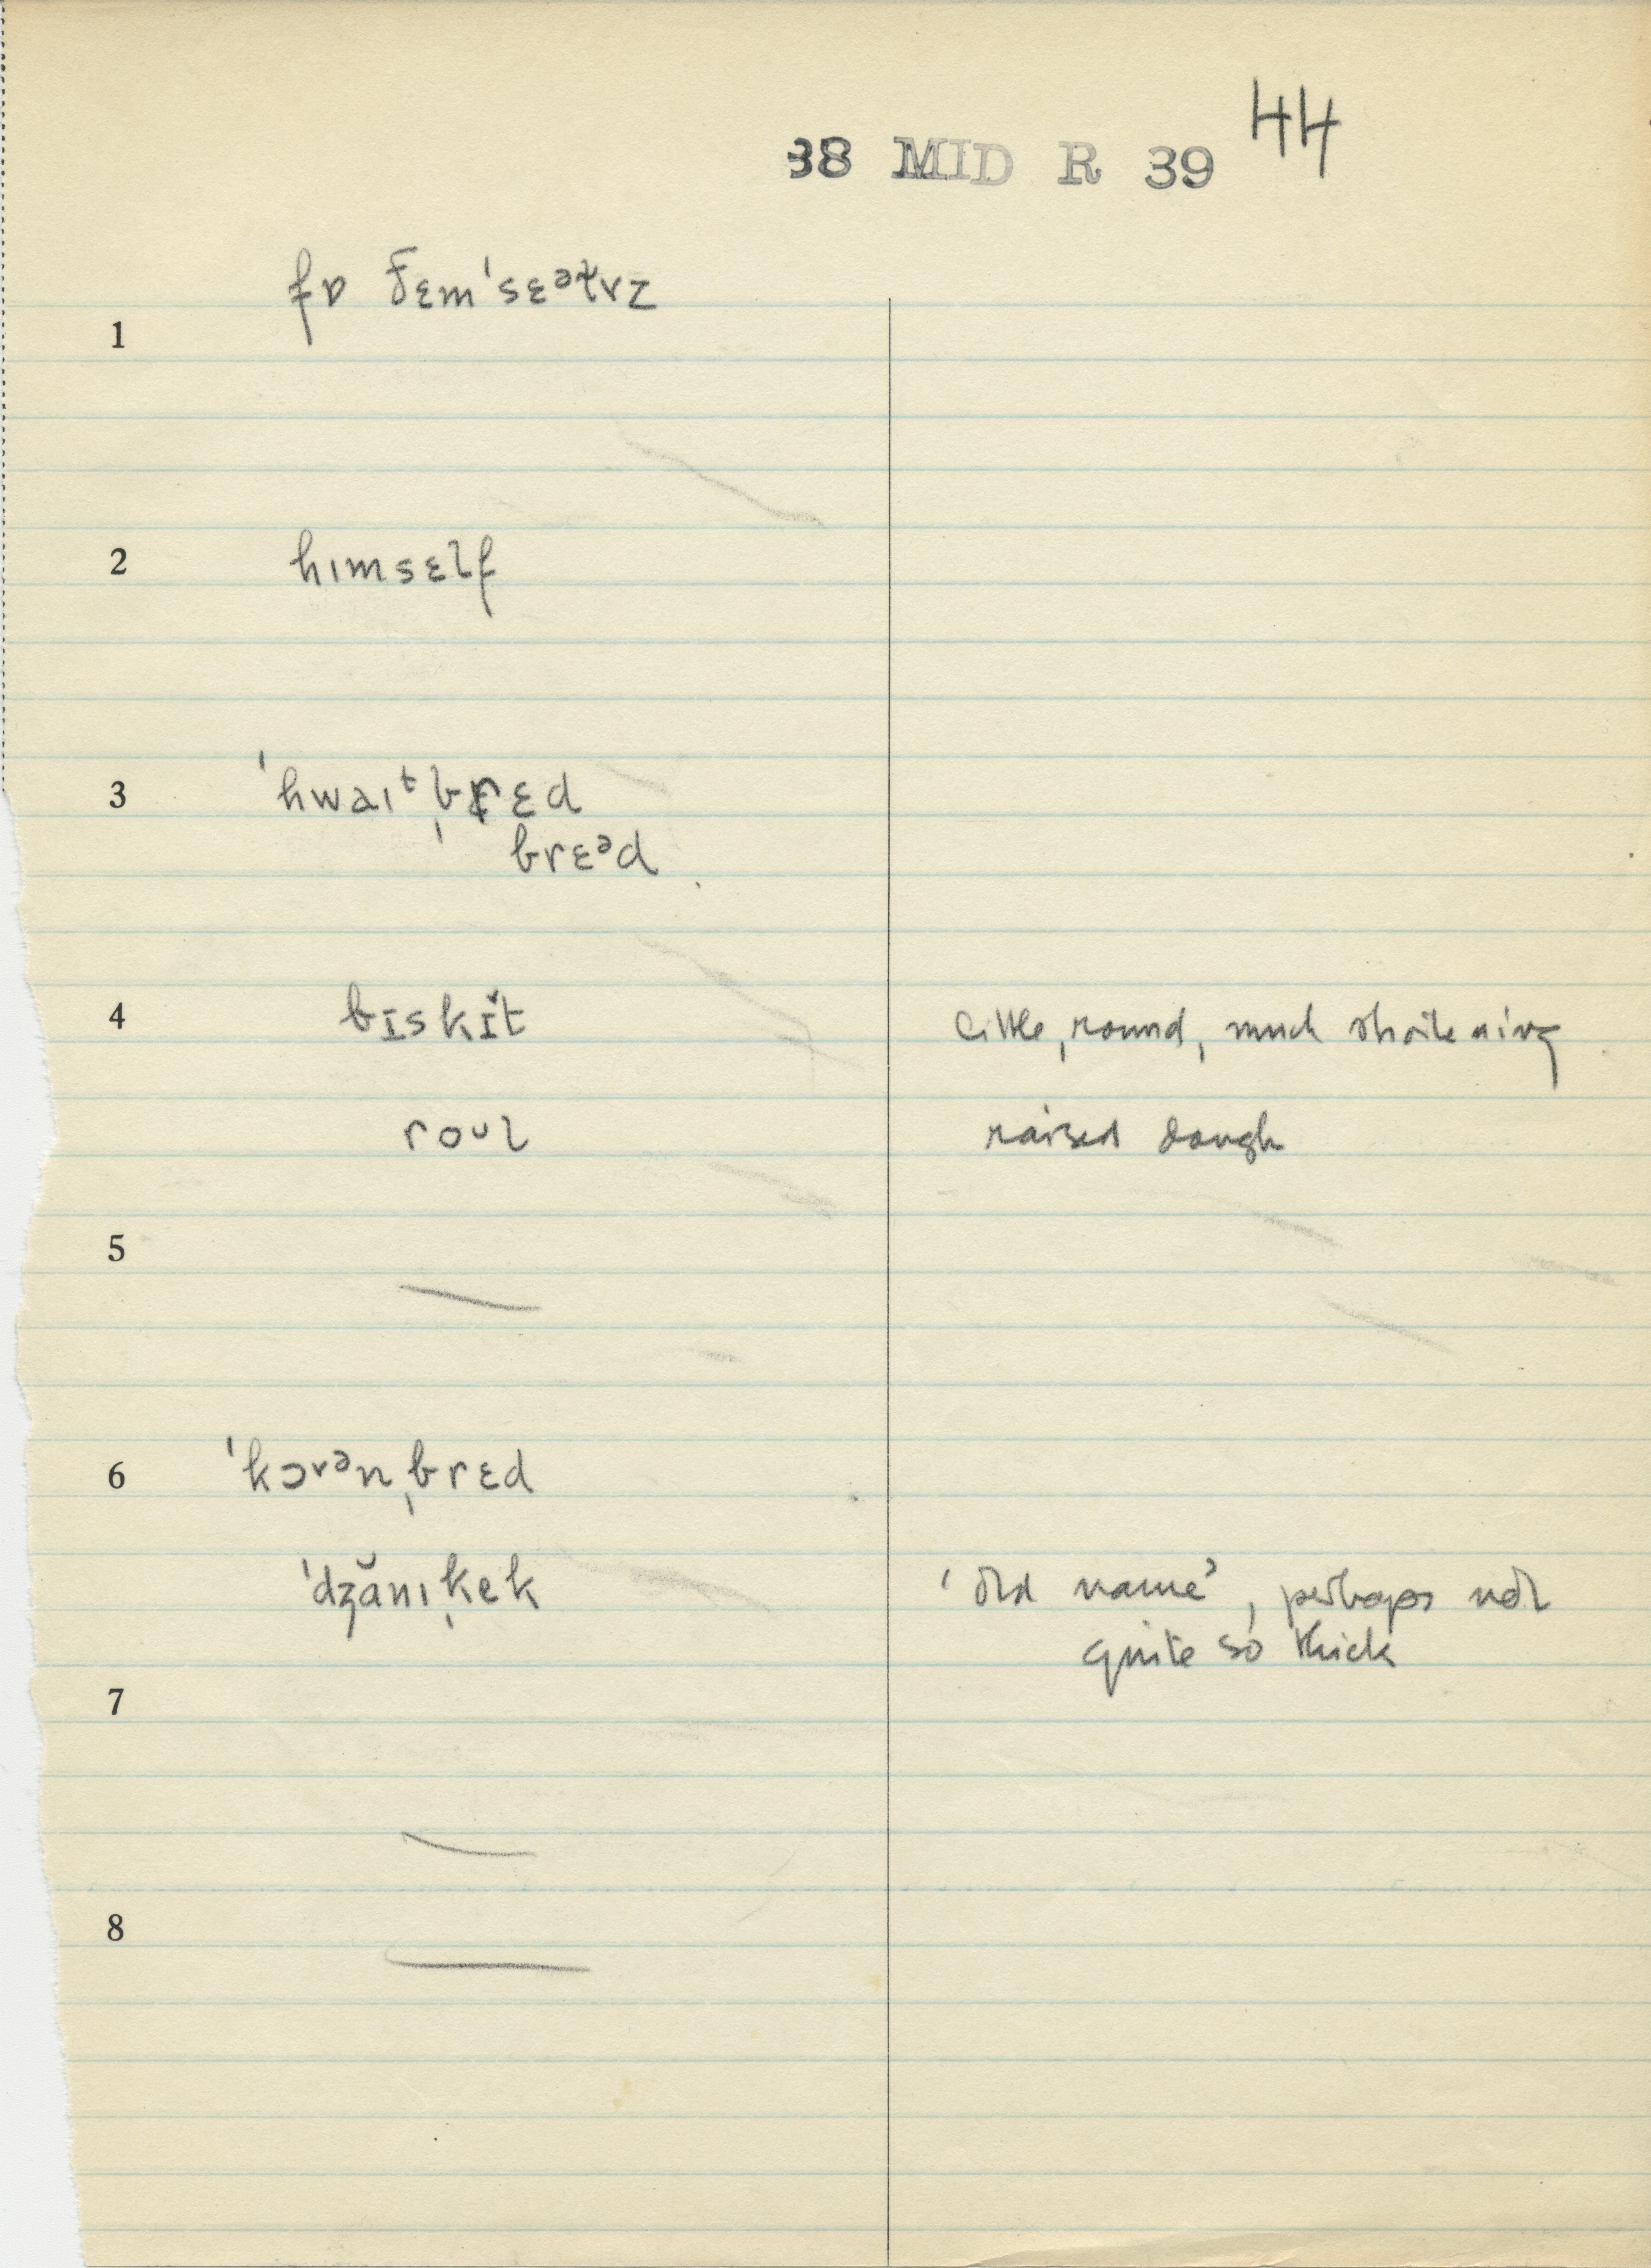 38 MID R 39 44
1 fɒ ðɛmˈsɛᵊɫvz
2 hɪmsɛlf
3 ˈhwaɪᵗˌbrɛd
brɛᵊd
4 bɪskɪ̆t little, round, much shortening
roᴜl raised dough
5 —
6 ˈkɔrᵊnˌbrɛd
ˈdʒănɪˌkek 'old name', perhaps not
quite so thick
7 —
8 —